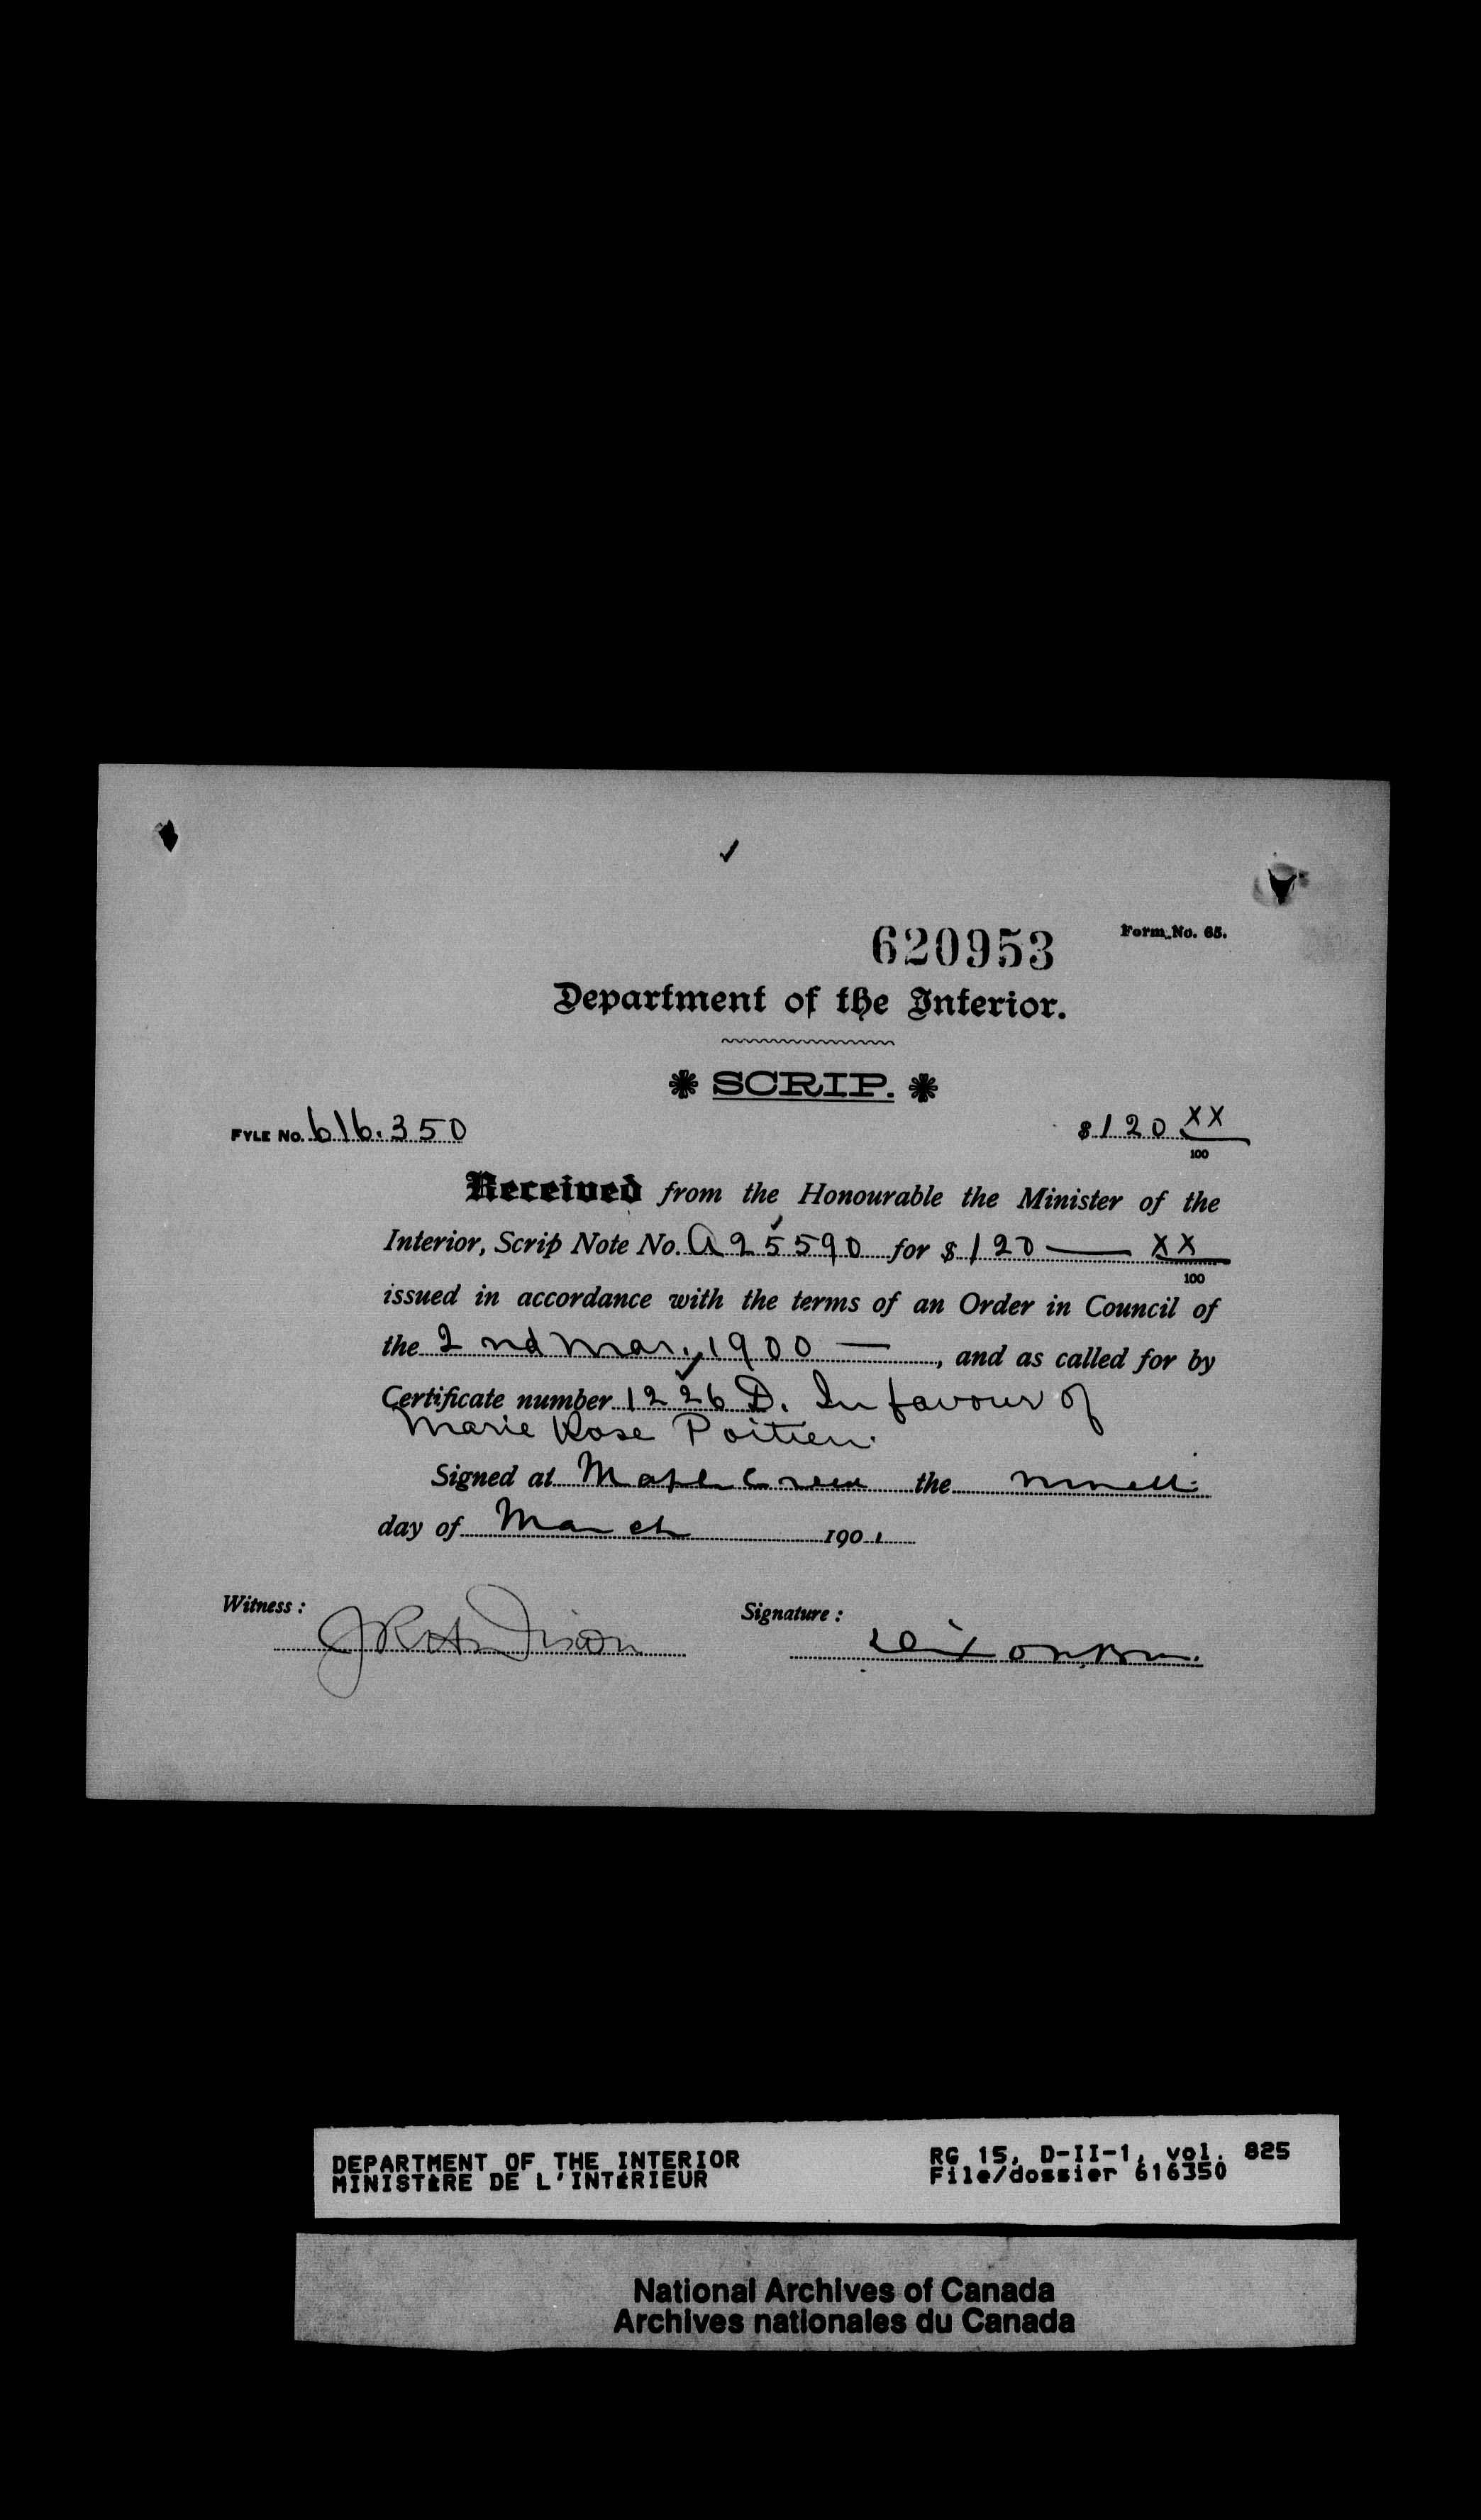 620953
Form No. 65.
Department of the Interior.
SCRIP.
FYLE No. 616.350
$120 XX/100
Received from the Honourable the Minister of the
Interior, Scrip Note No. A 25590 for $120 — XX/100
issued in accordance with the terms of an Order in Council of
the 2nd Mar, 1900 —, and as called for by
Certificate number 1226 D. In favour of
Marie Rose Poitien.
Signed at Maple Creek the ninth
day of March 1901
Witness:
Signature:
Dixon Bros.
DEPARTMENT OF THE INTERIOR
MINISTÈRE DE L'INTÉRIEUR
RG 15, D-II-1, vol. 825
File/dossier 616350
National Archives of Canada
Archives nationales du Canada